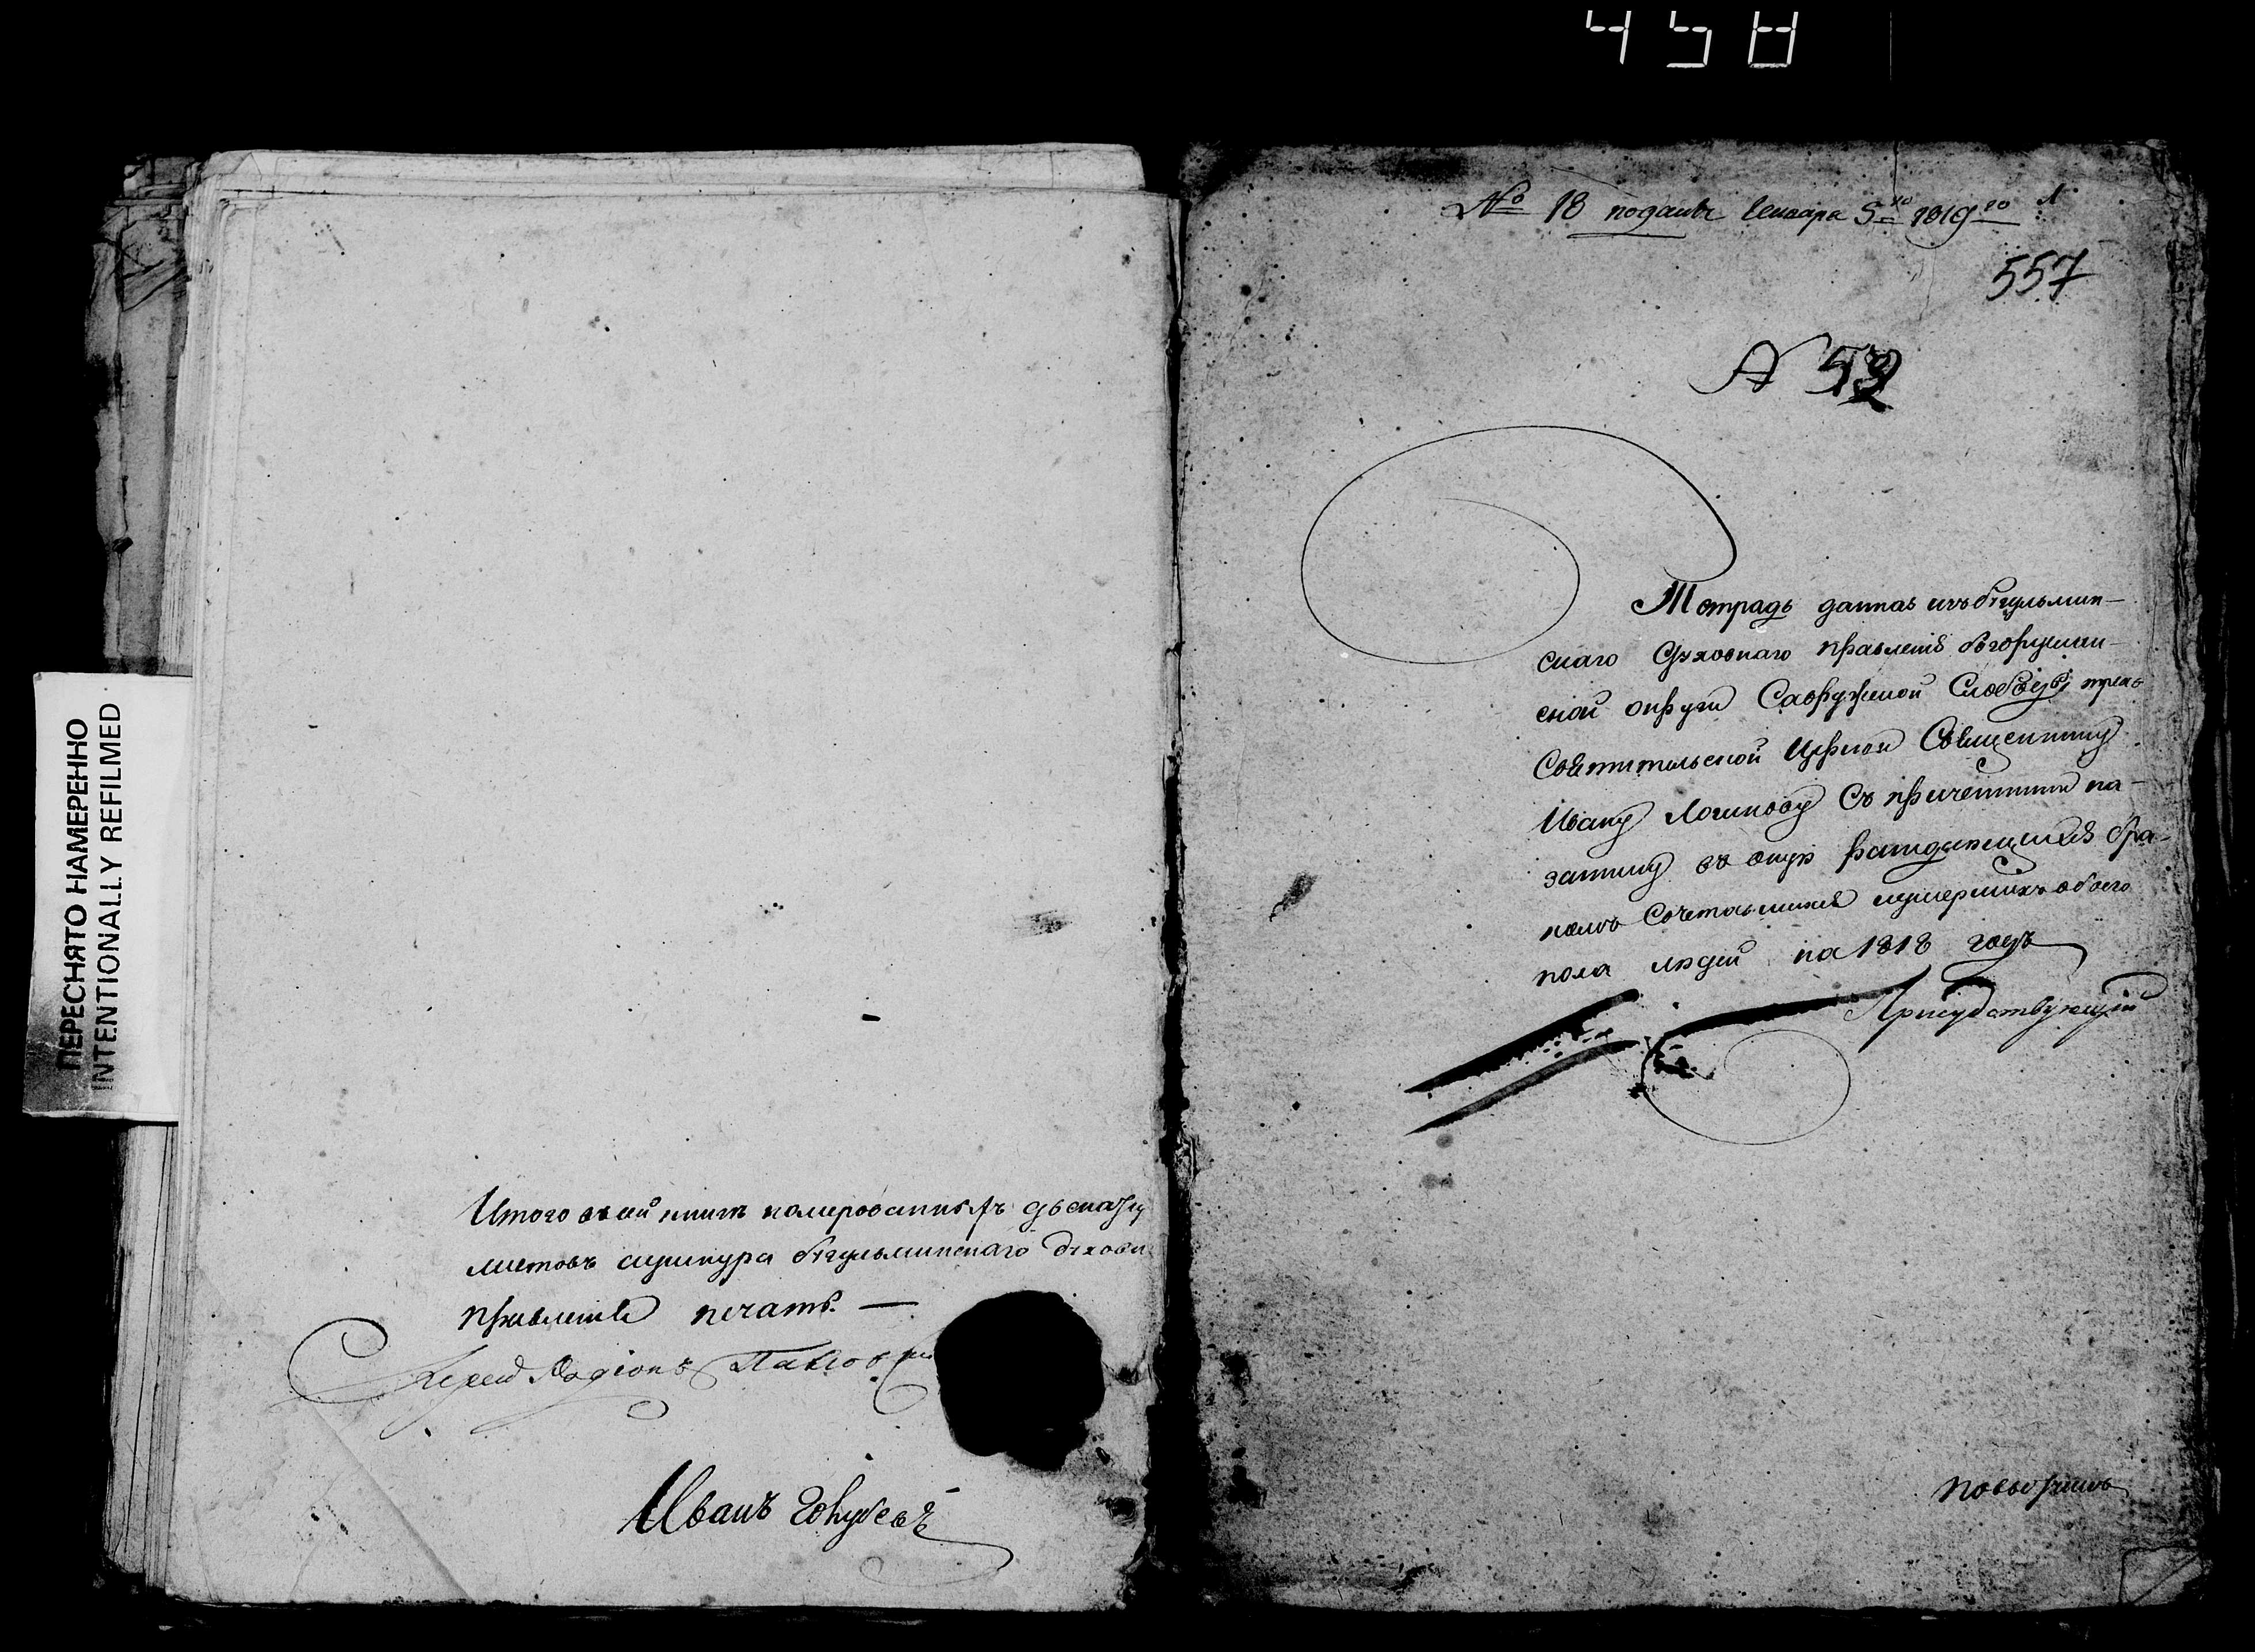 458
ПЕРЕСНЯТО НАМЕРЕННО
INTENTIONALLY REFILMED
Итого въ сей книге номерованныхъ двенатцу
листовъ сушнура бугульминскаго духовн
правления печать. —
Иерей Родионъ Павловъ
Иванъ Голубевъ
№ 18 поданъ Генваря 5го 1819го
557
№ 52
Тетрадь данная изъ бугульмин-
скаго Духовнаго правления бугульмин-
ской округи Слободы трехъ
Святительской Церкви Священнику
Ивану Логинову Съ причетники на
записку въ оную раждающихся бра-
комъ Сочетавшихся иумершихъ обоего
пола людей на 1818 годъ
Присудствующий